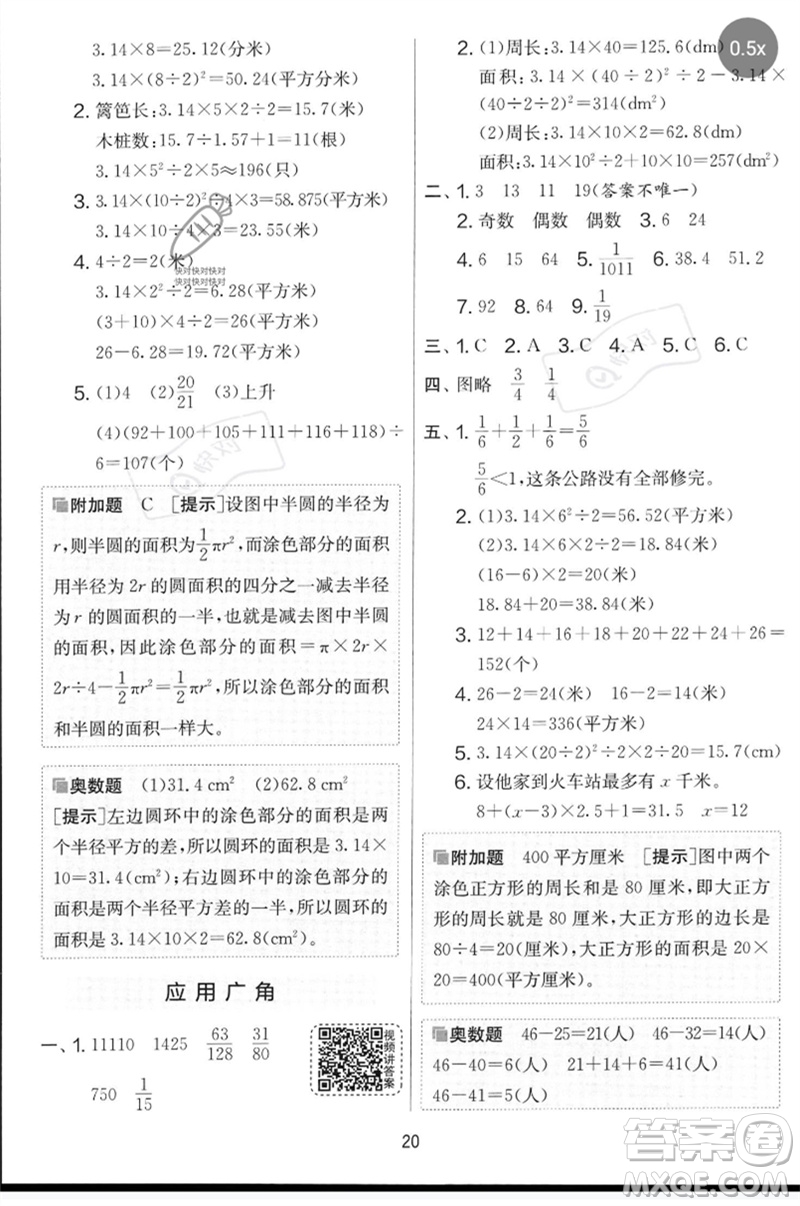 3.14×8=25.12(分米)
3.14×(8÷2)²=50.24(平方分米)
2. 篱笆长:3.14×5×2÷2=15.7(米)
木桩数:15.7÷1.57+1=11(根)
3.14×5²÷2×5≈196(只)
3. 3.14×(10÷2)²÷4×3=58.875(平方米)
3.14×10÷4×3=23.55(米)
4. 4÷2=2(米)
3.14×2²÷2=6.28(平方米)
(3+10)×4÷2=26(平方米)
26-6.28=19.72(平方米)
5. (1)4 (2)20/21 (3)上升
(4)(92+100+105+111+116+118)÷
6=107(个)
附加题 C [提示]设图中半圆的半径为
r,则半圆的面积为1/2πr²,而涂色部分的面积
用半径为2r的圆面积的四分之一减去半径
为r的圆面积的一半,也就是减去图中半圆
的面积,因此涂色部分的面积=π×2r×
2r÷4-1/2πr²=1/2πr²,所以涂色部分的面积
和半圆的面积一样大。
奥数题 (1)31.4 cm² (2)62.8 cm²
[提示]左边圆环中的涂色部分的面积是两
个半径平方的差,所以圆环的面积是3.14×
10=31.4(cm²);右边圆环中的涂色部分的
面积是两个半径平方差的一半,所以圆环的
面积是3.14×10×2=62.8(cm²)。
应用广角
一、1. 11110 1425 63/128 31/80
750 1/15
视频讲答案
2. (1)周长:3.14×40=125.6(dm)
面积:3.14×(40÷2)²÷2-3.14×
(40÷2÷2)²=314(dm²)
(2)周长:3.14×10×2=62.8(dm)
面积:3.14×10²÷2+10×10=257(dm²)
二、1. 3 13 11 19(答案不唯一)
2. 奇数 偶数 偶数 3. 6 24
4. 6 15 64 5. 1/1011 6. 38.4 51.2
7. 92 8. 64 9. 1/19
三、1. C 2. A 3. C 4. A 5. A 6. C
四、图略 3/4 1/4
五、1. 1/6+1/2+1/6=5/6
5/6<1,这条公路没有全部修完。
2. (1)3.14×6²÷2=56.52(平方米)
(2)3.14×6×2÷2=18.84(米)
(16-6)×2=20(米)
18.84+20=38.84(米)
3. 12+14+16+18+20+22+24+26=
152(个)
4. 26-2=24(米) 16-2=14(米)
24×14=336(平方米)
5. 3.14×(20÷2)²÷20=15.7(cm)
6. 设他家到火车站最多有x千米。
8+(x-3)×2.5+1=31.5 x=12
附加题 400平方厘米 [提示]图中两个
涂色正方形的周长和是80厘米,即大正方
形的周长就是80厘米,大正方形的边长是
80÷4=20(厘米),大正方形的面积是20×
20=400(平方厘米)。
奥数题 46-25=21(人) 46-32=14(人)
46-40=6(人) 21+14+6=41(人)
46-41=5(人)
20
0.5x
快对快对快对
快对快对快对
快对
快对
答案圈
MXQE.COM